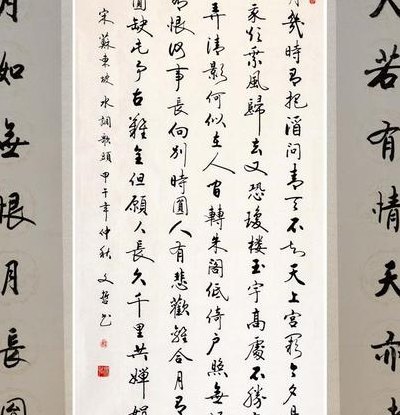 若有情天亦
月幾時有把酒問青天不知天上宮闕今夕
我欲乘風歸去又恐瓊樓玉宇高處不勝
弄清影何似在人間轉朱閣低綺戶照無
有恨何事長向別時圓人有悲歡離合月有
圓缺此事古難全但願人長久千里共嬋娟
宋蘇東坡水調歌頭甲午年仲秋文哲書
月如無恨月長圓